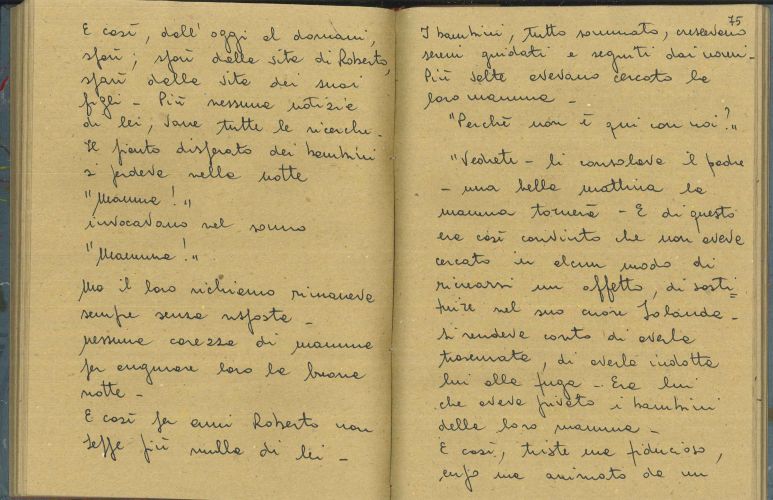 E così, dall'oggi al domani,
sparì; sparì dalla vita di Roberto,
sparì dalla vita dei suoi
figli - Più nessuna notizia
di lei, vane tutte le ricerche -
Il pianto disperato dei bambini
si perdeva nella notte
"Mamma!"
invocavano nel sonno
"Mamma!"
Ma il loro richiamo rimaneva
sempre senza risposta -
nessuna carezza di mamma
per augurare loro la buona
notte -
E così per anni Roberto non
seppe più nulla di lei -
75
I bambini, tutto sommato, crescevano
sereni guidati e seguiti dai nonni -
Più volte avevano cercato la
loro mamma -
"Perchè non è qui con noi?"
"Vedrete - li consolava il padre
- una bella mattina la
mamma tornerà - E di questo
era così convinto che non aveva
cercato in alcun modo di
ricrearsi un affetto, di sosti=
tuire nel suo cuore Jolanda -
Si rendeva conto di averla
trascurata, di averla indotta
lui alla fuga - Era lui
che aveva privato i bambini
della loro mamma -
E così, triste ma fiducioso,
cupo ma animato da un